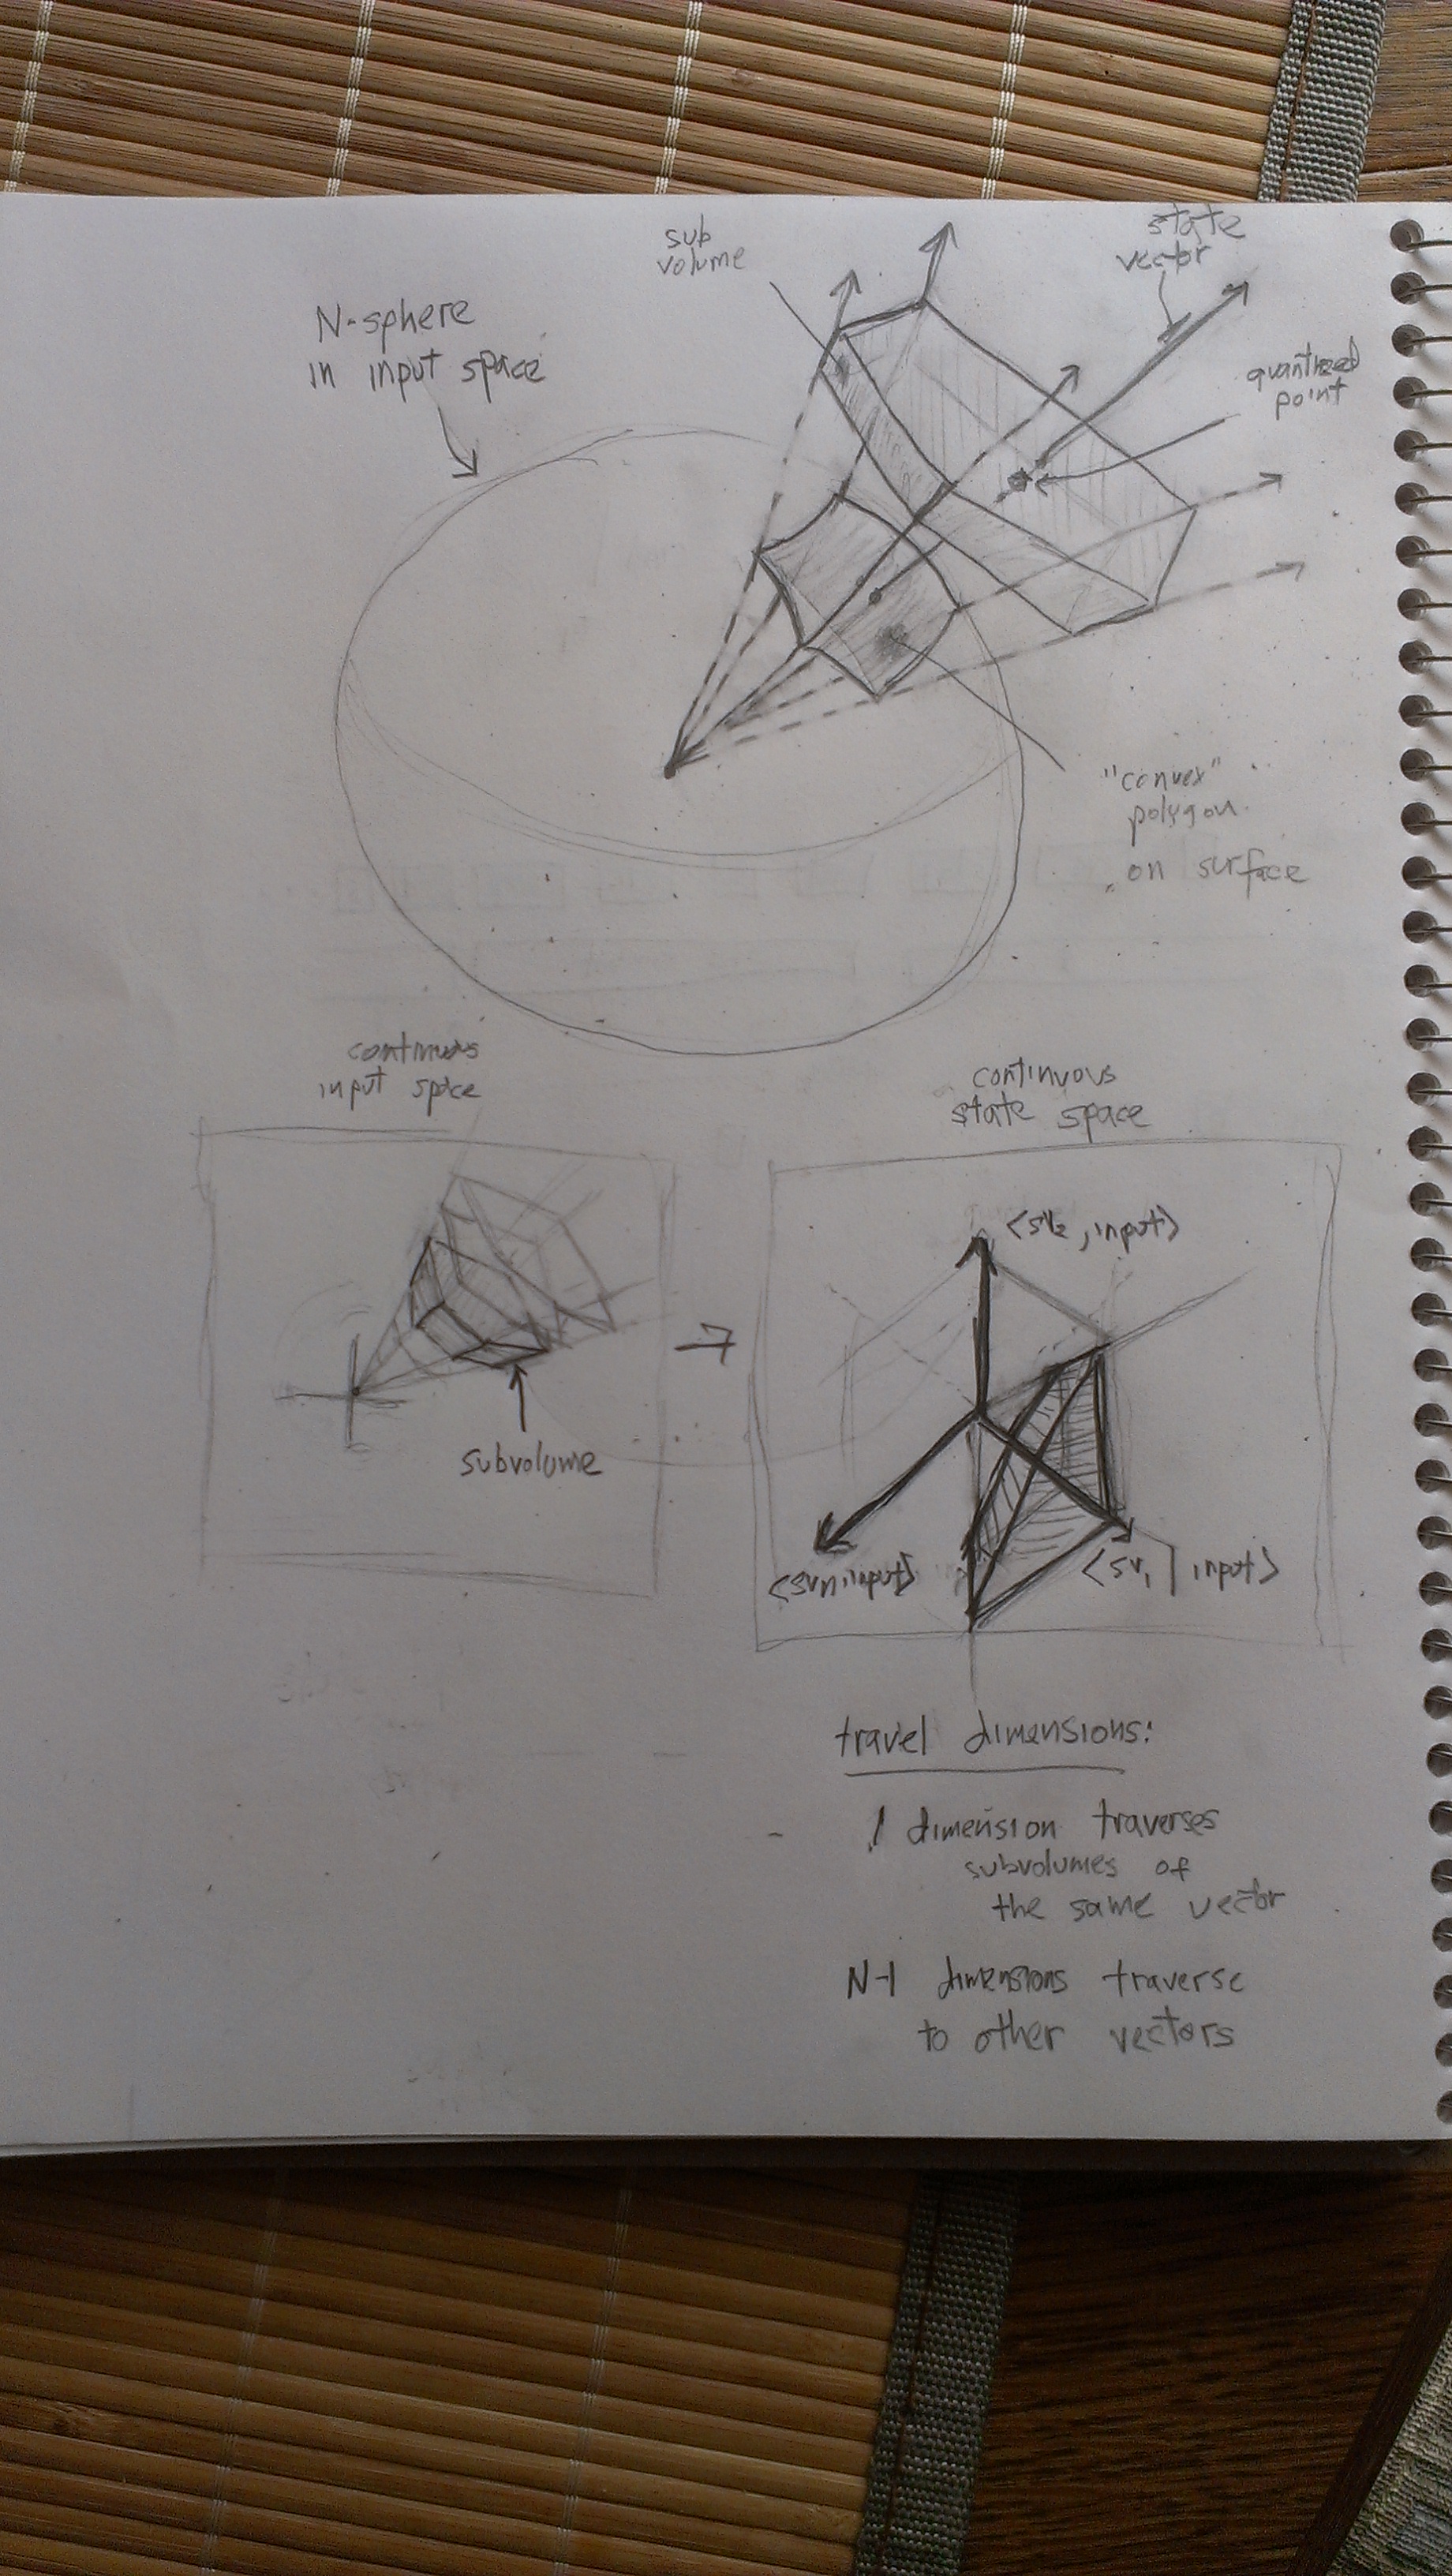 sub
volume
state
vector
N-sphere
in input space
quantized
point
"convex"
polygon
on surface
continuous
input space
continuous
state space
<sv2, input>
subvolume
<svn, input>
<sv1, input>
travel dimensions:
- 1 dimension traverses
subvolumes of
the same vector
N-1 dimensions traverse
to other vectors